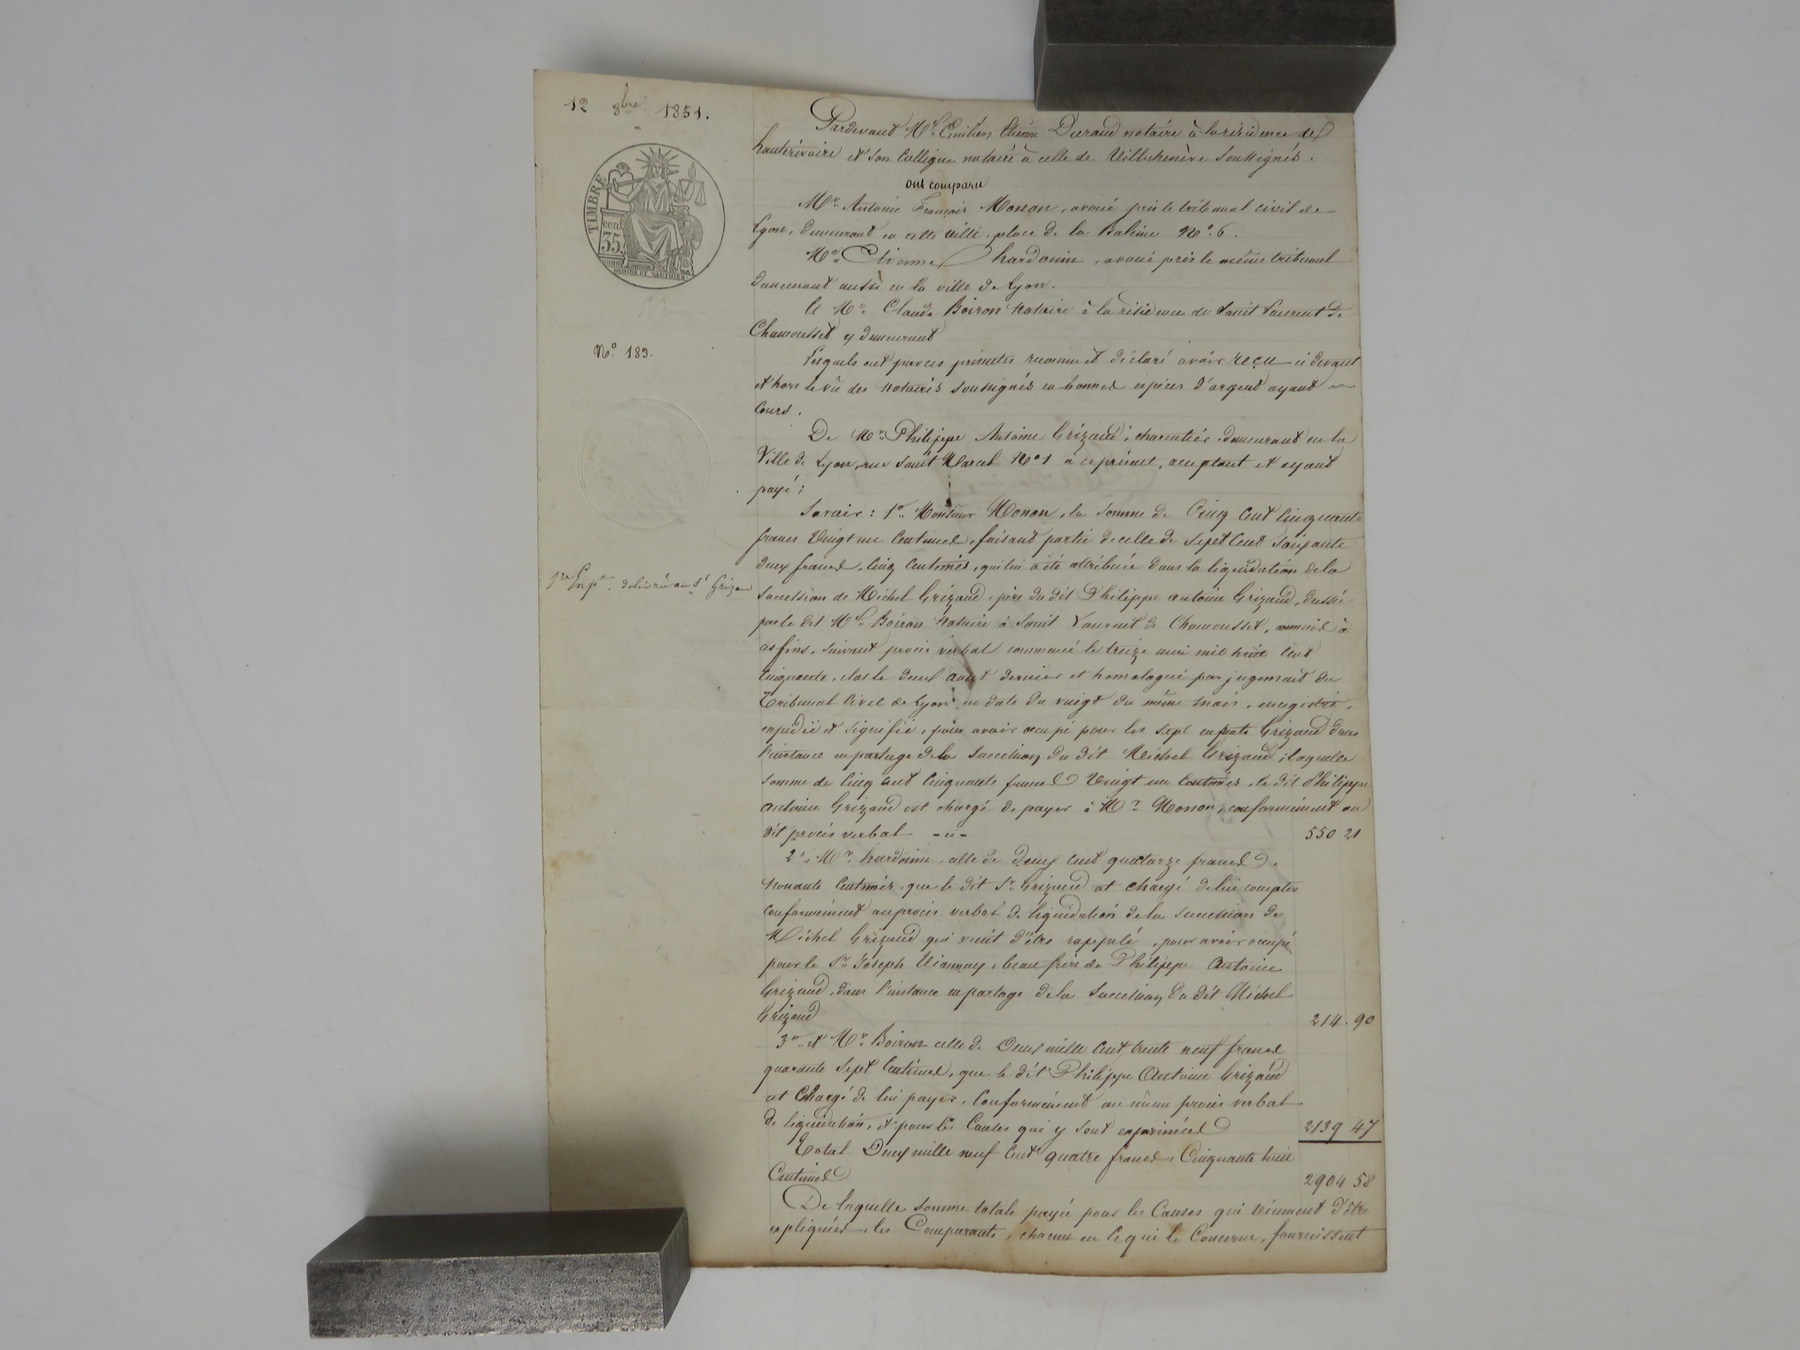 12 8bre 1851.
TIMBRE
cen
35
N.o 183.
1re Exp.on délivrée au Sr Grizau
Pardevant Me. Emilien Etienne Durand notaire à la résidence de
hauterivoire et son Collègue notaire à celle de Villechenève Soussignés.
ont comparu
Mr. Antoine François Monon, avoué près le tribunal civil de
Lyon, demeurant en cette ville, place de la Baleine No. 6.
Mr. Etienne hardouin, avoué près le même tribunal
demeurant aussi en la ville de Lyon.
Et Mr. Claude Boiron Notaire à la résidence de Saint Laurent de
Chamousset y demeurant
Lesquels ont par ces présentes reconnu et déclaré avoir reçu ci devant
et hors la vue des Notaires soussignés en bonnes espèces d'argent ayant
Cours.
De Mr. Philippe Antoine Grizaud, demeurant en la
Ville de Lyon, rue Saint Marcel No 1 à ce présent, acceptant et ayant
payé ;
Savoir : 1o. Monsieur Monon, la Somme de Cinq Cent Cinquante
francs Vingt un Centimes, faisant partie de celle de Sept Cent Soixante
deux francs, Cinq Centimes, qui lui a été attribuée dans la liquidation de la
Succession de Michel Grizaud, père du dit Philippe antoine Grizaud, dressée
par le dit Me. Boiron Notaire à Saint Laurent de Chamousset, commis à
ces fins, suivant procès verbal commencé le treize mai mil huit Cent
Cinquante, clos le deux août dernier et homologué par jugement du
Tribunal Civil de Lyon en date du vingt du même mois, enregistré,
expédié et signifié, pour avoir occupé pour les sept enfants Grizaud dans
l'instance en partage de la Succession du dit Michel Grizaud ; laquelle
somme de Cinq cent Cinquante francs Vingt un Centimes, le dit Philippe
Antoine Grizaud est chargé de payer à Mr. Monon, conformément au
dit procès verbal -ci- 550 21
2o. Mr. hardouin, celle de Deux Cent quatorze francs
Nonante Centimes, que le dit Sr. Grizaud est Chargé de lui compter
conformément au procès verbal de liquidation de la Succession de
Michel Grizaud qui vient d'être rappelé, pour avoir occupé
pour le Sr. Joseph Viannay, beau frère de Philippe Antoine
Grizaud, dans l'instance en partage de la Succession du dit Michel
Grizaud 214. 90
3o. et Mr. Boiron celle de Deux mille Cent trente neuf francs
quarante Sept Centimes, que le dit Philippe Antoine Grizaud
est Chargé de lui payer, Conformément au même procès verbal
de liquidation, et pour les Causes qui y sont exprimées 2139 47
Total Deux mille neuf Cent quatre francs, Cinquante huit
Centimes 2904 58
De laquelle somme totale payée pour les Causes qui viennent d'être
expliquées, les Comparants, chacun en ce qui le Concerne, fournissent